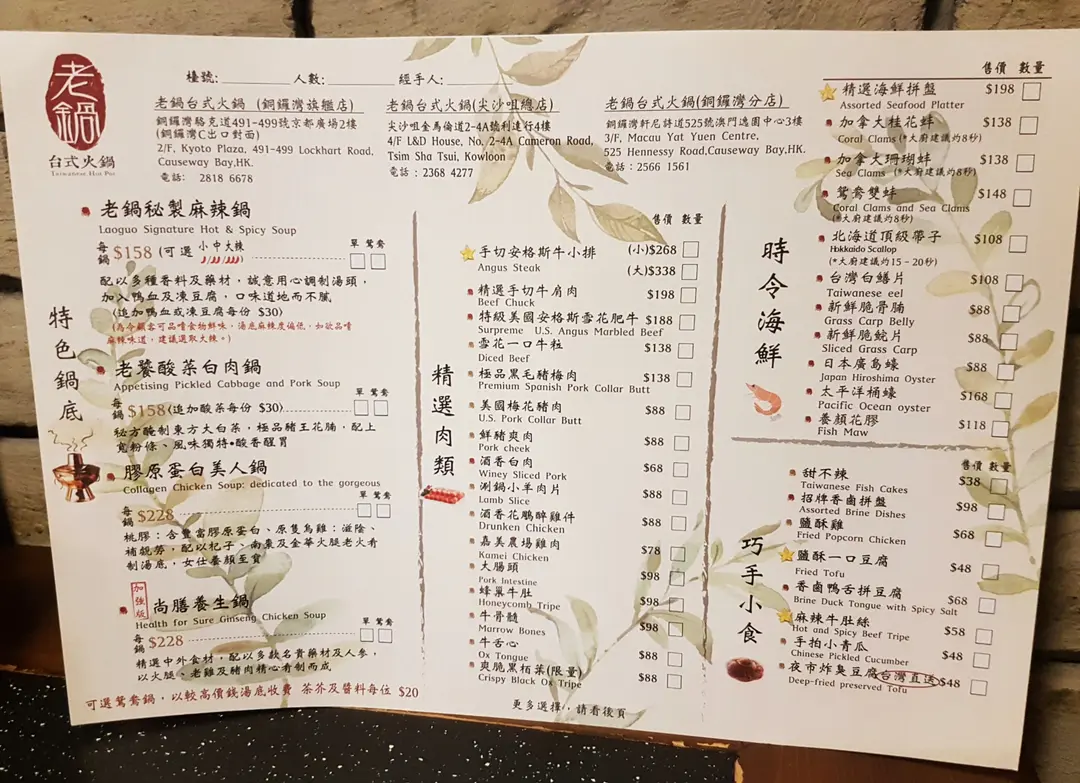 老鍋
台式火鍋
Taiwanese Hot Pot
檯號:________ 人數:________ 經手人:
老鍋台式火鍋 (銅鑼灣旗艦店)
銅鑼灣駱克道491-499號京都廣場2樓
(銅鑼灣C出口對面)
2/F, Kyoto Plaza, 491-499 Lockhart Road,
Causeway Bay,HK.
電話: 2818 6678
老鍋台式火鍋(尖沙咀總店)
尖沙咀金馬倫道2-4A號利達行4樓
4/F L&D House, No. 2-4A Cameron Road,
Tsim Sha Tsui, Kowloon
電話:2368 4277
老鍋台式火鍋(銅鑼灣分店)
銅鑼灣軒尼詩道525號澳門逸園中心3樓
3/F, Macau Yat Yuen Centre,
525 Hennessy Road,Causeway Bay,HK.
電話:2566 1561
特色鍋底
老鍋秘製麻辣鍋
Laoguo Signature Hot & Spicy Soup
單 鴛鴦
每鍋 $158 (可選 小中大辣
配以多種香料及藥材,誠意用心調制湯頭,
加入鴨血及凍豆腐,口味道地而不膩,
(追加鴨血或凍豆腐每份 $30)
(為令顧客可品嚐食物鮮味,湯底麻辣度偏低,如欲品嚐
麻辣味道,建議選取大辣。)
老饕酸菜白肉鍋
Appetising Pickled Cabbage and Pork Soup
單 鴛鴦
每鍋 $158(追加酸菜每份 $30)
秘方醃制東方大白菜,極品豬王花腩,配上
寬粉條、風味獨特•酸香醒胃
膠原蛋白美人鍋
Collagen Chicken Soup: dedicated to the gorgeous
單 鴛鴦
每鍋 $228
桃膠:含豐富膠原蛋白、原隻烏雞:滋陰、
補虢勞,配以杞子、南棗及金華火腿老火肴
制湯底,女仕養顏至寶
加強版
尚膳養生鍋
Health for Sure Ginseng Chicken Soup
單 鴛鴦
每鍋 $228
精選中外食材,配以多款名貴藥材及人參,
以火腿、老雞及豬肉精心肴制而成
可選鴛鴦鍋,以較高價錢湯底收費 茶芥及醬料每位 $20
精選肉類
售價 數量
手切安格斯牛小排 (小)$268
Angus Steak (大)$338
精選手切牛肩肉 $198
Beef Chuck
特級美國安格斯雪花肥牛 $188
Surpreme U.S. Angus Marbled Beef
雪花一口牛粒 $138
Diced Beef
極品黑毛豬梅肉 $138
Premium Spanish Pork Collar Butt
美國梅花豬肉 $88
U.S. Pork Collar Butt
鮮豬爽肉 $88
Pork cheek
酒香白肉 $68
Winey Sliced Pork
涮鍋小羊肉片 $88
Lamb Slice
酒香花鵰醉雞件 $88
Drunken Chicken
嘉美農場雞肉 $78
Kamei Chicken
大腸頭 $98
Pork Intestine
蜂巢牛肚 $98
Honeycomb Tripe
牛骨髓 $98
Marrow Bones
牛舌心 $88
Ox Tongue
爽脆黑栢葉(限量) $88
Crispy Black Ox Tripe
更多選擇,請看後頁
時令海鮮
售價 數量
精選海鮮拼盤 $198
Assorted Seafood Platter
加拿大桂花蚌 $138
Coral Clams (*大廚建議灼8秒)
加拿大珊瑚蚌 $138
Sea Clams (*大廚建議灼8秒)
鴛鴦雙蚌 $148
Coral Clams and Sea Clams
(*大廚建議灼8秒)
北海道頂級帶子 $108
Hokkaido Scallop
(*大廚建議灼15-20秒)
台灣白鱔片 $108
Taiwanese eel
新鮮脆骨腩 $88
Grass Carp Belly
新鮮脆鯇片 $88
Sliced Grass Carp
日本廣島蠔 $88
Japan Hiroshima Oyster
太平洋桶蠔 $168
Pacific Ocean oyster
養顏花膠 $118
Fish Maw
巧手小食
售價 數量
甜不辣 $38
Taiwanese Fish Cakes
招牌香鹵拼盤 $98
Assorted Brine Dishes
鹽酥雞 $68
Fried Popcorn Chicken
鹽酥一口豆腐 $48
Fried Tofu
香鹵鴨舌拼豆腐 $68
Brine Duck Tongue with Spicy Salt
麻辣牛肚絲 $58
Hot and Spicy Beef Tripe
手拍小青瓜 $48
Chinese Pickled Cucumber
夜市炸臭豆腐 台灣直送 $48
Deep-fried preserved Tofu